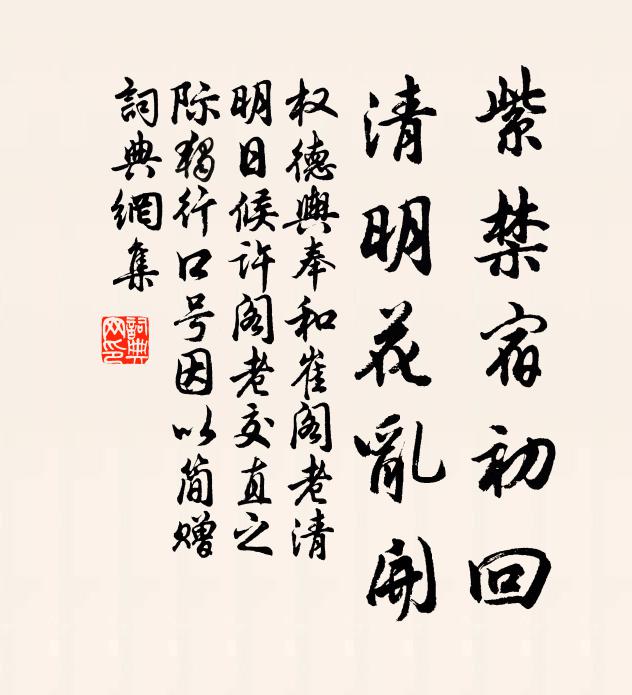 紫禁宿初回
清明花亂開
权德輿奉和崔阁老清
明日候许阁老交直之
际独行口号因以简赠
詞典網集
詞典
网印